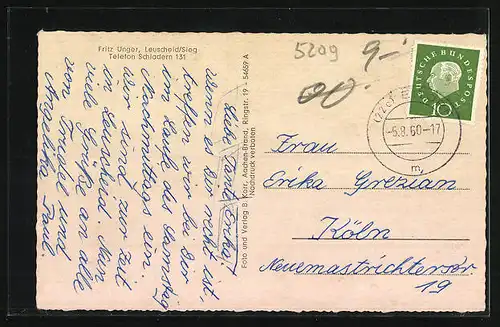 Fritz Unger, Leuscheid/Sieg
Telefon Schladern 131
5209
9,-
DEUTSCHE BUNDESPOST
10
-5.8.60-17
Liebe Tante Erika!
Wenn es Dir recht ist,
treffen wir bei Dir
im Laufe des Samstag
Nachmittags ein.
Wir sind zur Zeit
in Leuscheid.
viele Grüße an alle
von und
Angelika Paul
Foto und Verlag B. Korr, Aachen-Brand, Ringstr. 19 - 54659 A
Nachdruck verboten
Frau
Erika Grezian
Köln
Neuemastrichterstr.
19